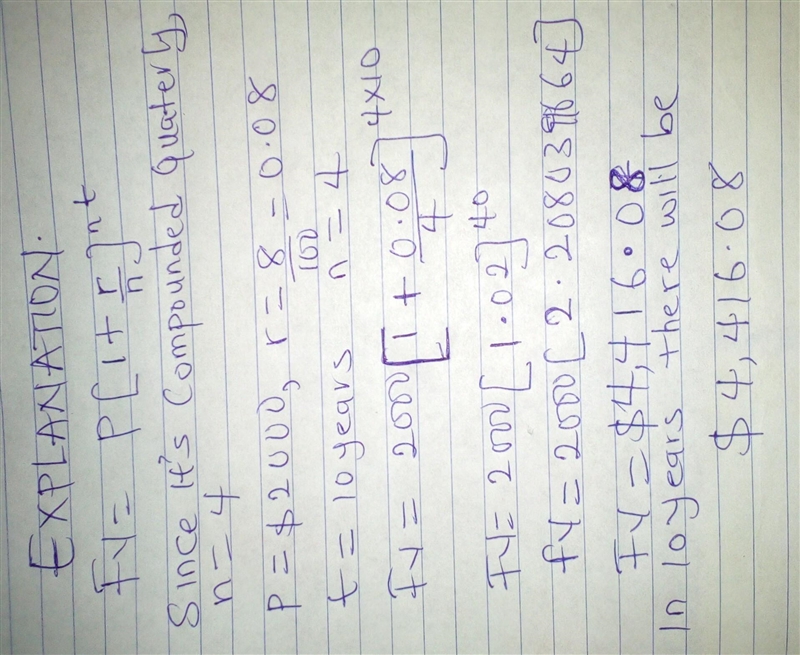 EXPLANATION.
FV = P[1 + r/n]^nt
Since It's Compounded quaterly,
n = 4
P = $2000, r = 8/100 - 0.08
t = 10 years n = 4
FV = 2000[1 + 0.08/4]^4x10
FV = 2000[1.02]^40
FV = 2000[2.208039664]
FV = $4,416.08
In 10 years there will be
$4,416.08